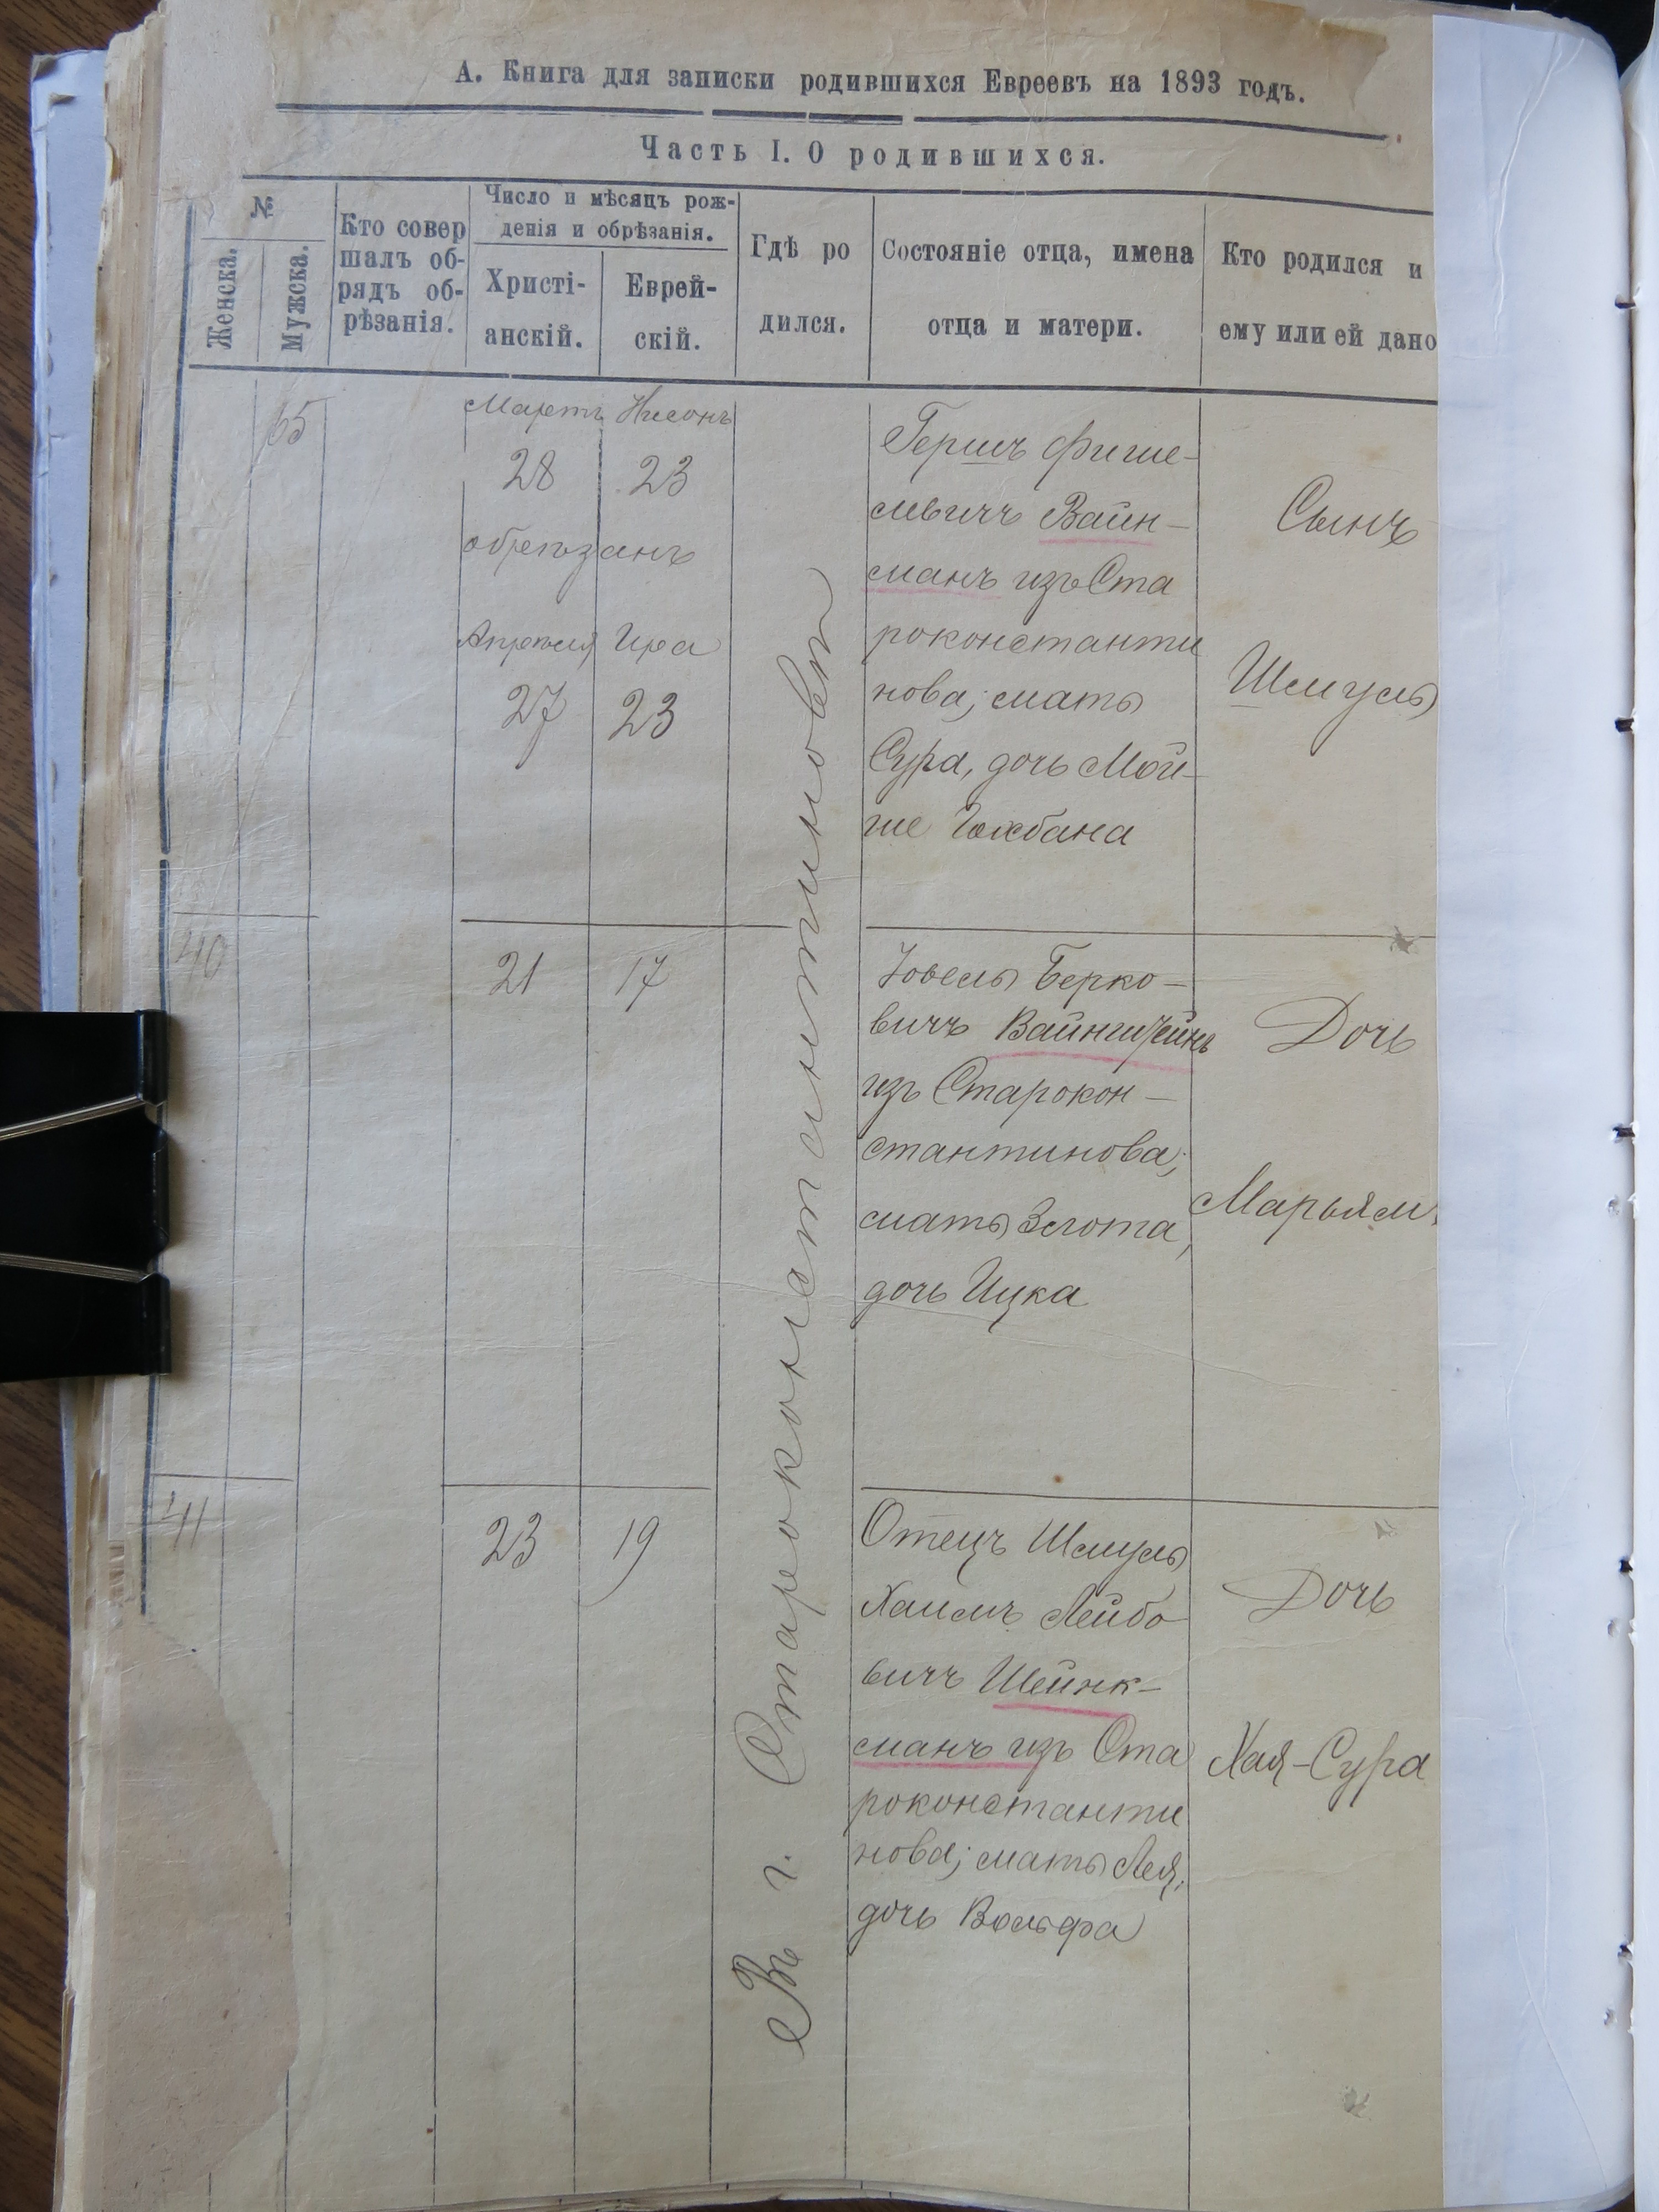 А. Книга для записки родившихся Евреевъ на 1893 годъ.
Часть I. О родившихся.
№
Женска.
Мужска.
Кто совер
шалъ об-
рядъ об-
рѣзанія.
Число и мѣсяцъ рож-
денія и обрѣзанія.
Христі-
анскій.
Еврей-
скій.
Гдѣ ро
дился.
Состояніе отца, имена
отца и матери.
Кто родился и
ему или ей дано
65
Мартъ Нисонъ
28 23
обрезанъ
Апрѣля Ира
27 23
Въ г. Староконстантиновѣ
Гершъ Фише-
левичъ Вайн-
манъ изъ Ста
роконстанти
нова; мать
Сура, дочь Мой-
ше
Сынъ
Шмуль
40
21 17
Іовель Берко-
вичъ Вайнштейнъ
изъ Старокон-
стантинова;
мать Злота,
дочь Ицка
Дочь
Марьям
41
23 19
Отецъ Шмуль
Хаимъ Лейбо
вичъ Шейнк-
манъ изъ Ста
роконстанти
нова; мать Лея,
дочь Вольфа
Дочь
Хая-Сура